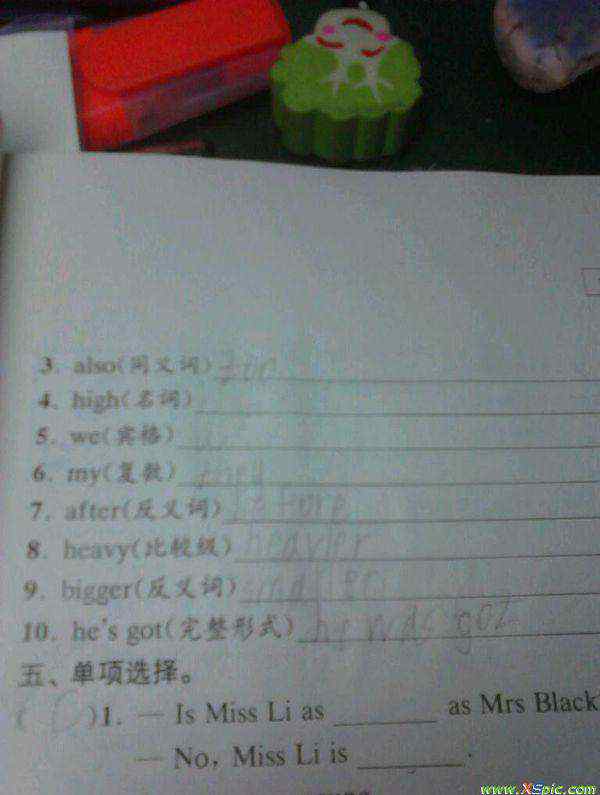 3. also(同义词)
4. high(名词)
5. we(宾格)
6. my(复数)
7. after(反义词) before
8. heavy(比较级) heavier
9. bigger(反义词) smaller
10. he's got(完整形式) he was got
五、单项选择。
( C )1. — Is Miss Li as ______ as Mrs Black
— No, Miss Li is ______.
www.XSpic.com